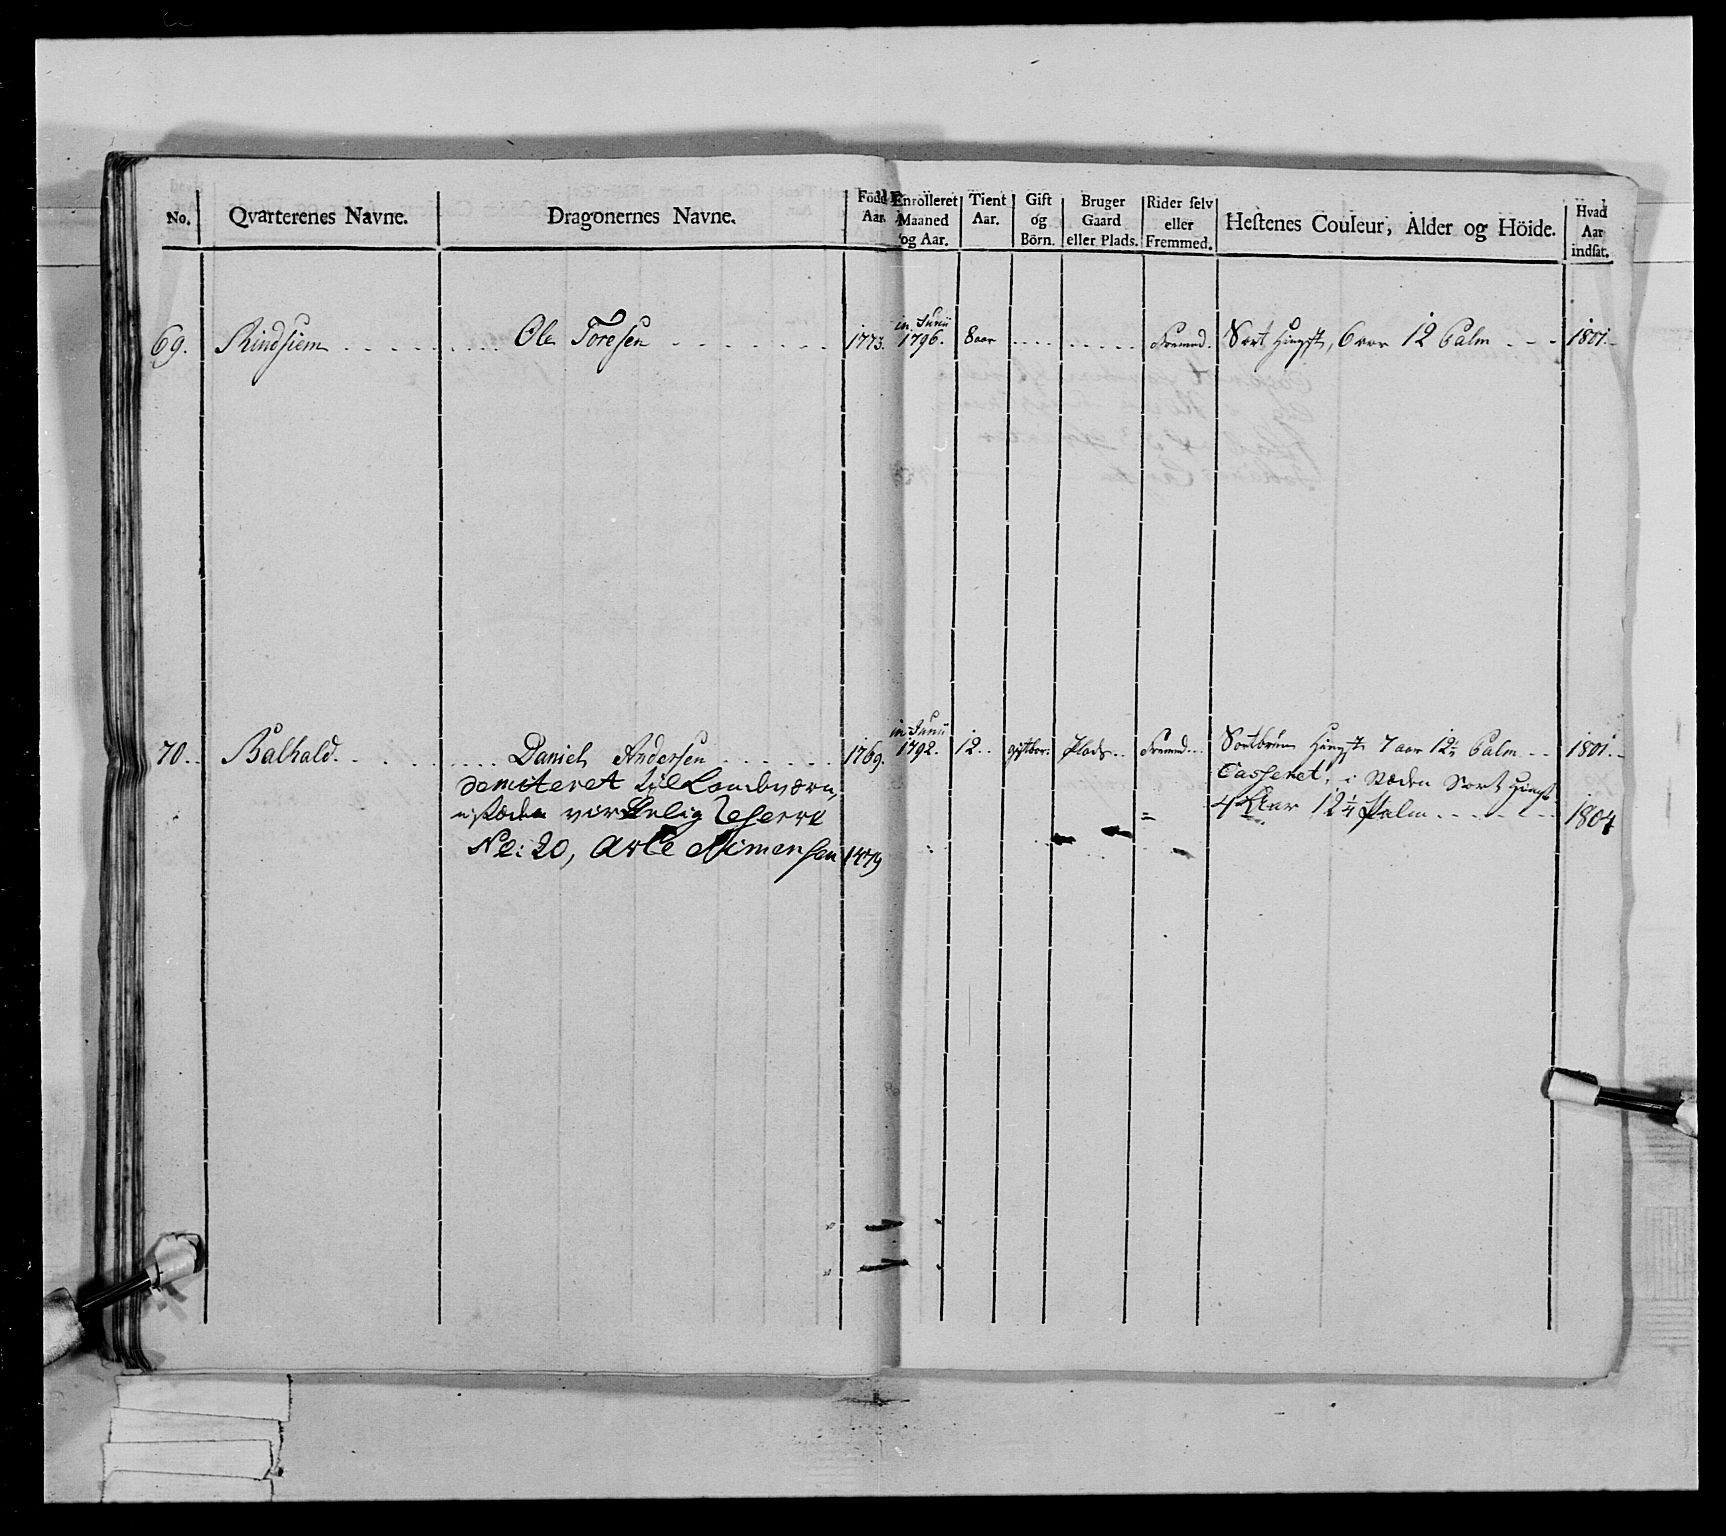 No. Qvarterenes Navne. Dragonernes Navne. Född Aar. Enrolleret Maaned og Aar. Tient Aar. Gift og Börn. Bruger Gaard eller Plads. Rider selv eller Fremmed. Hestenes Couleur, Alder og Höide. Hvad Aar indsat.
69. Rindsiem . . . . Ole Toresen . . . . 1773. in Junii 1796. 8 aar . . . . . . . . Fremed. Sort Hingst, 6 aar 12 Palm - - - 1801.
70. Balhald . . . . Daniel Andersen . . . . 1769. in Junii 1792. 12. gift Plads . . Fremed. Sortbrun Hingst 7 aar Palm - - 1801.
demiteret til Landværn, Casseret, i Stæden Sort Hingst
i stæden virkelig Reserve 4 Aar 12 1/4 Palm . . . . 1804
No: 20, Simensen